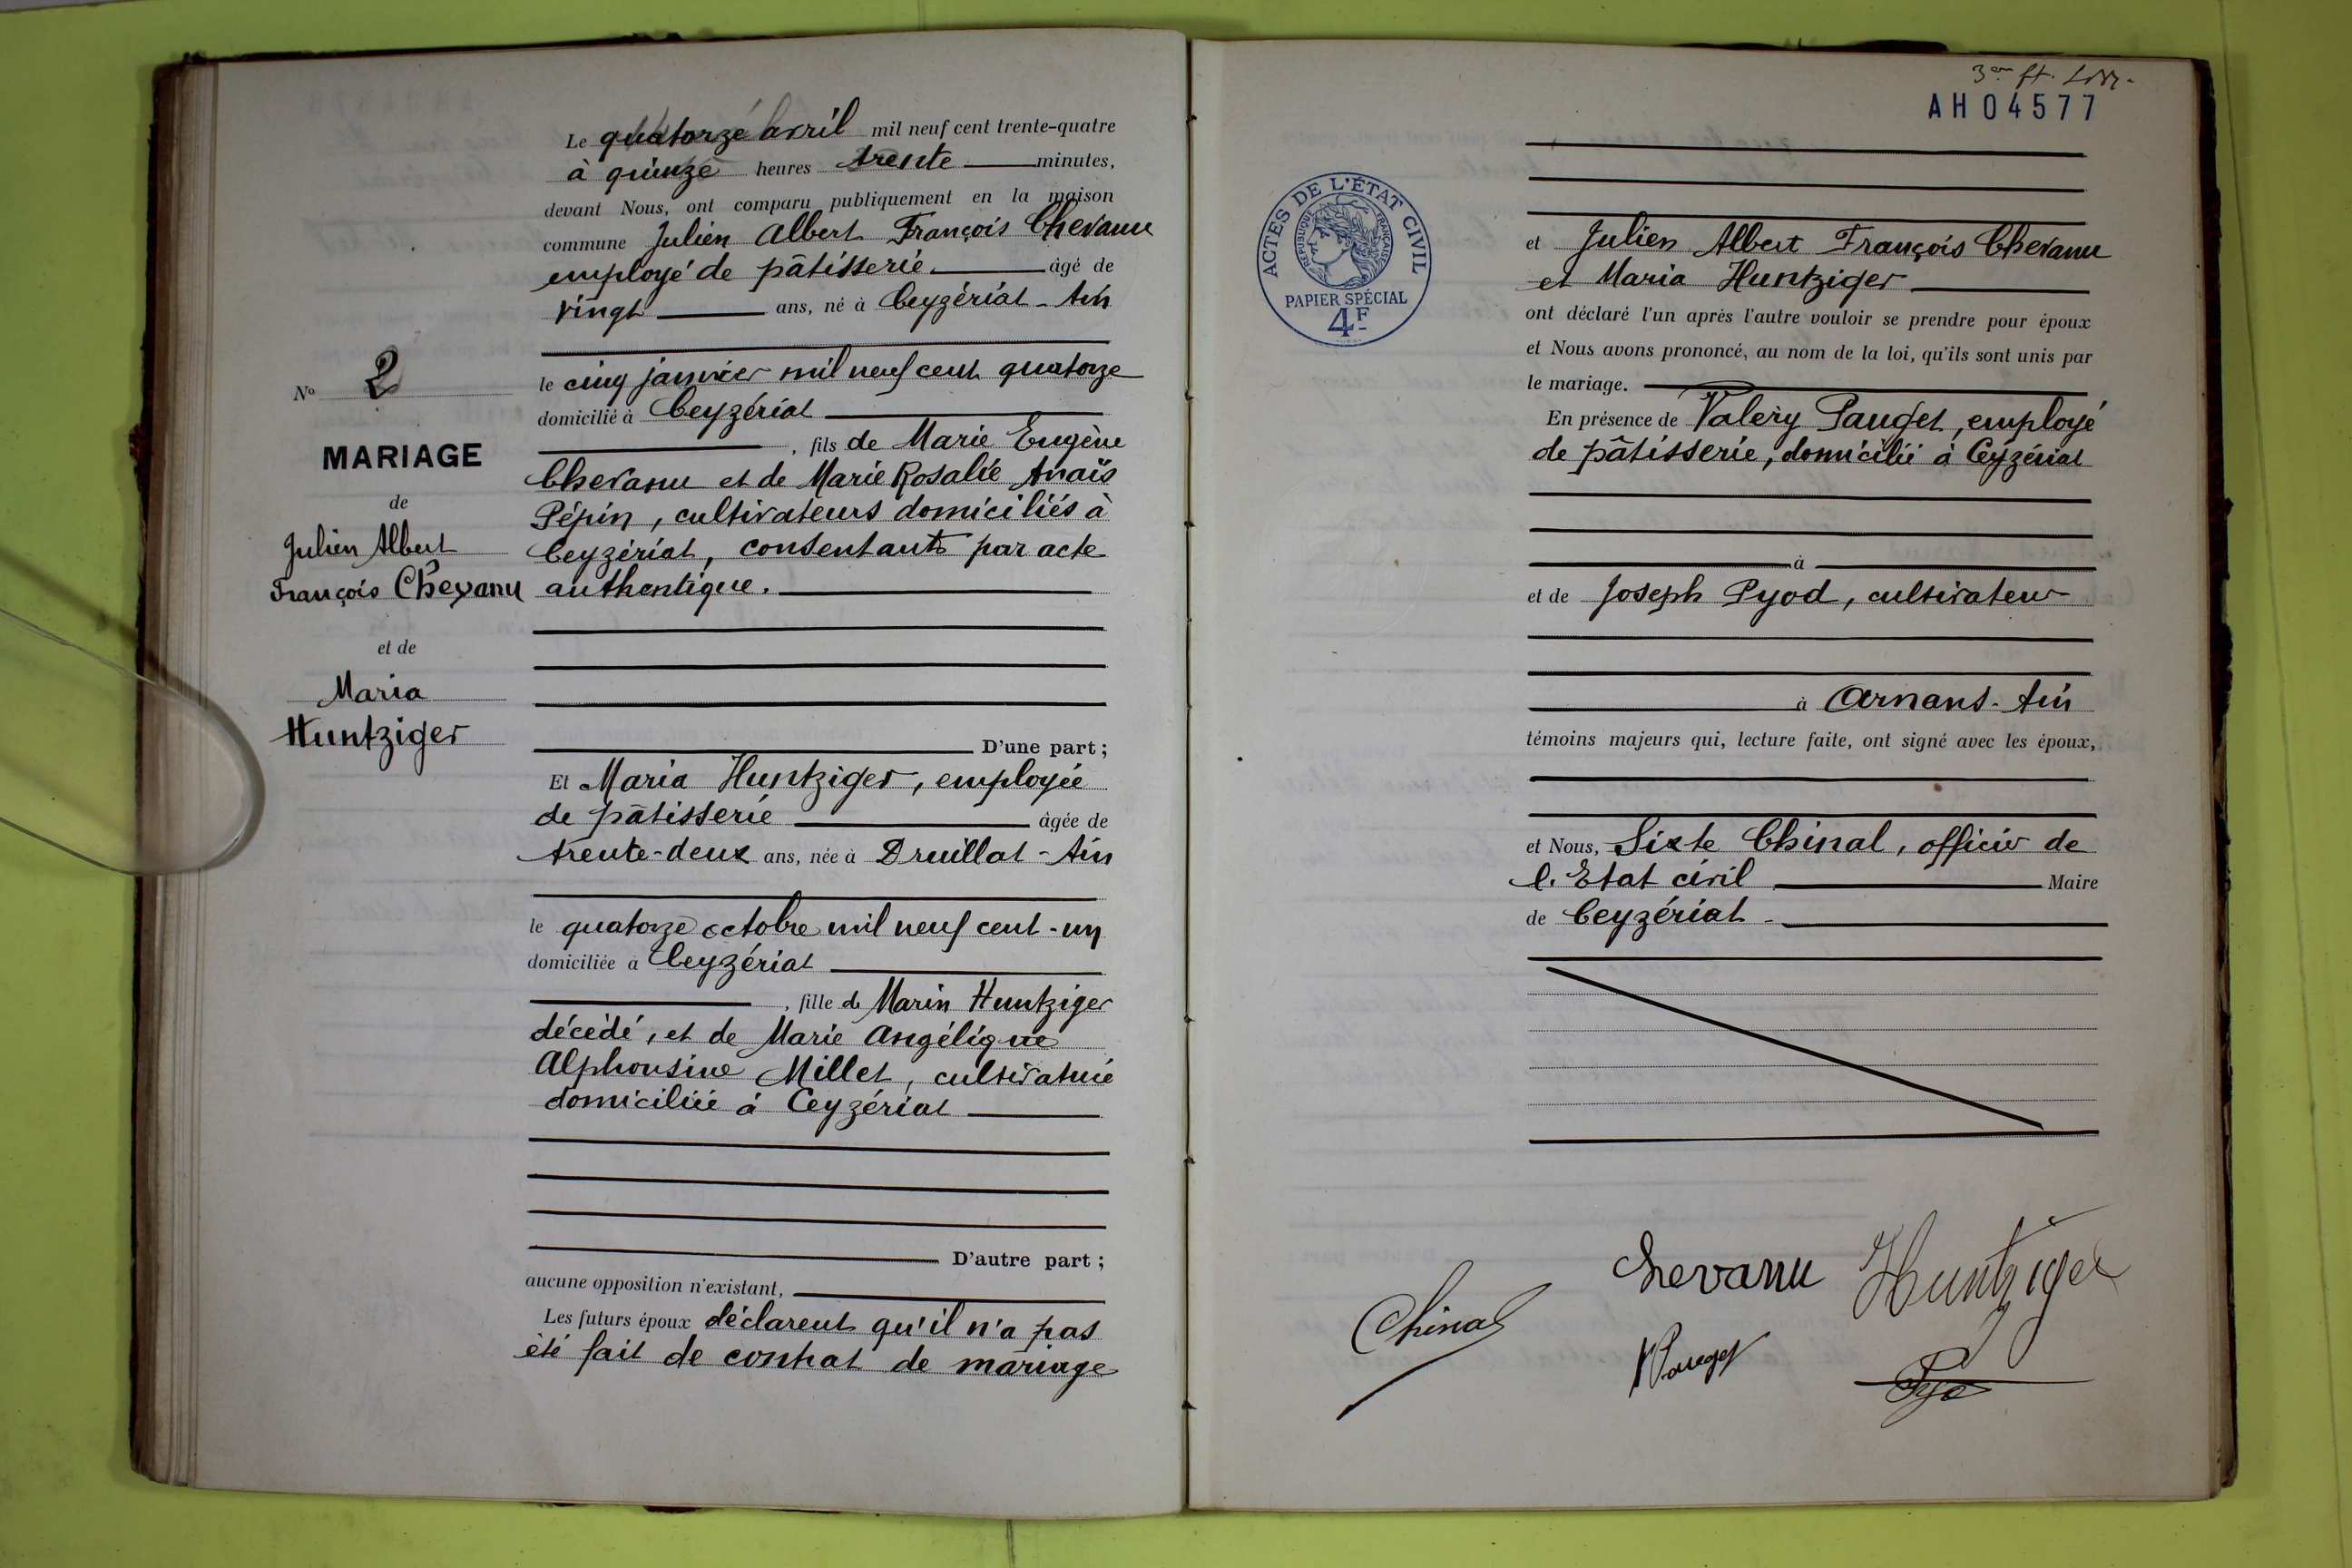 Le quatorze avril mil neuf cent trente-quatre
à quinze heures trente minutes,
devant Nous, ont comparu publiquement en la maison
commune Julien Albert François Chevanu
employé de pâtisserie âgé de
vingt ans, né à Ceyzériat - Ain
le cinq janvier mil neuf cent quatorze
domicilié à Ceyzériat
, fils de Marie Eugène
Chevanu et de Marie Rosalie Anaïs
Pépin, cultivateurs domiciliés à
Ceyzériat, consentants par acte
authentique.
D'une part ;
Et Maria Huntziger, employée
de pâtisserie âgée de
trente-deux ans, née à Druillat - Ain
le quatorze octobre mil neuf cent-un
domiciliée à Ceyzériat
, fille de Marin Huntziger
décédé, et de Marie Angélique
Alphonsine Millet, cultivatrice
domiciliée à Ceyzériat
D'autre part ;
aucune opposition n'existant,
Les futurs époux déclarent qu'il n'a pas
été fait de contrat de mariage
No 2
MARIAGE
de
Julien Albert
François Chevanu
et de
Maria
Huntziger
AH04577
ACTES DE L'ÉTAT CIVIL
RÉPUBLIQUE FRANÇAISE
PAPIER SPÉCIAL
4F
et Julien Albert François Chevanu
et Maria Huntziger
ont déclaré l'un après l'autre vouloir se prendre pour époux
et Nous avons prononcé, au nom de la loi, qu'ils sont unis par
le mariage.
En présence de Valery Pauget, employé
de pâtisserie, domicilié à Ceyzériat
à
et de Joseph Pyod, cultivateur
à Arnans - Ain
témoins majeurs qui, lecture faite, ont signé avec les époux,
et Nous, Sixte Chinal, officier de
l'Etat civil Maire
de Ceyzériat -
Chevanu Huntziger
Chinal
VPauget